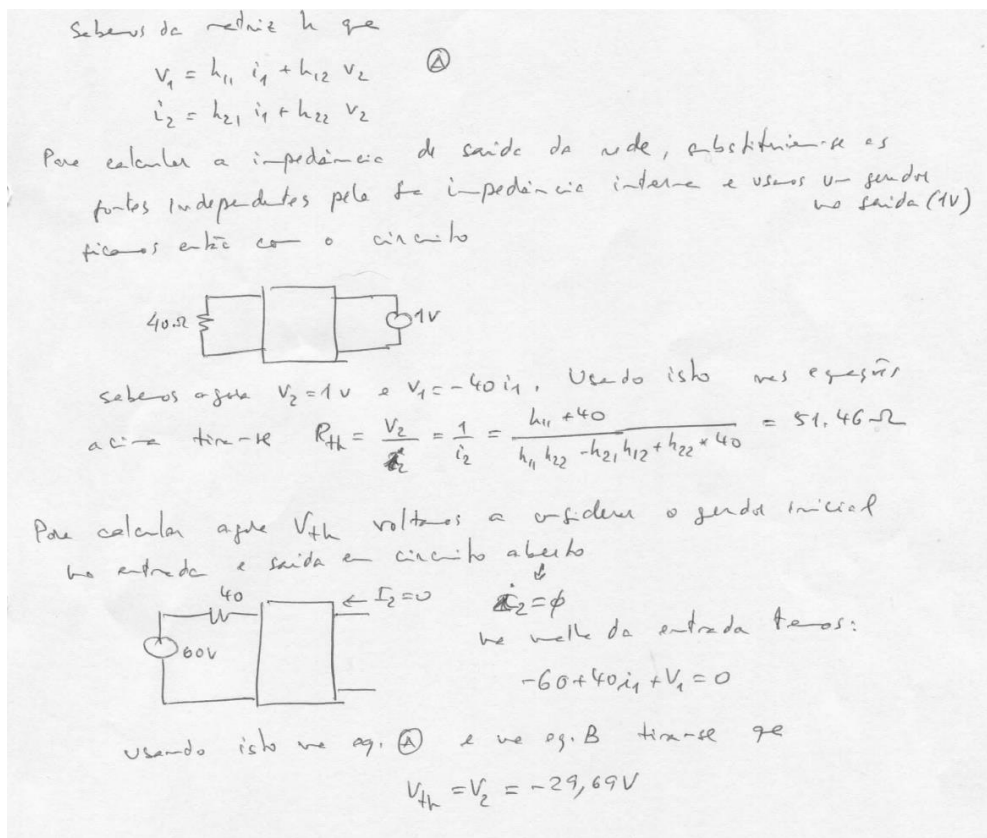 Sabemos da matriz h que
v₁ = h₁₁ i₁ + h₁₂ v₂ Ⓐ
i₂ = h₂₁ i₁ + h₂₂ v₂
Para calcular a impedância de saída da rede, substituiem-se as
fontes independentes pela sua impedância interna e usamos um gerador
na saída (1V)
ficamos então com o circuito
40Ω 1V
sabemos agora V₂ = 1V e V₁ = -40 i₁. Usando isto nas equações
acima tira-se R_th = V₂/i₂ = 1/i₂ = (h₁₁ + 40)/(h₁₁ h₂₂ - h₂₁ h₁₂ + h₂₂ * 40) = 51.46 Ω
Para calcular agora V_th voltamos a considerar o gerador inicial
na entrada e saída em circuito aberto
40 ← I₂=0 ↓ i₂ = ϕ
60V na malha da entrada temos:
-60 + 40 i₁ + V₁ = 0
usando isto na eq. Ⓐ e na eq. B tira-se que
V_th = V₂ = -29,69V